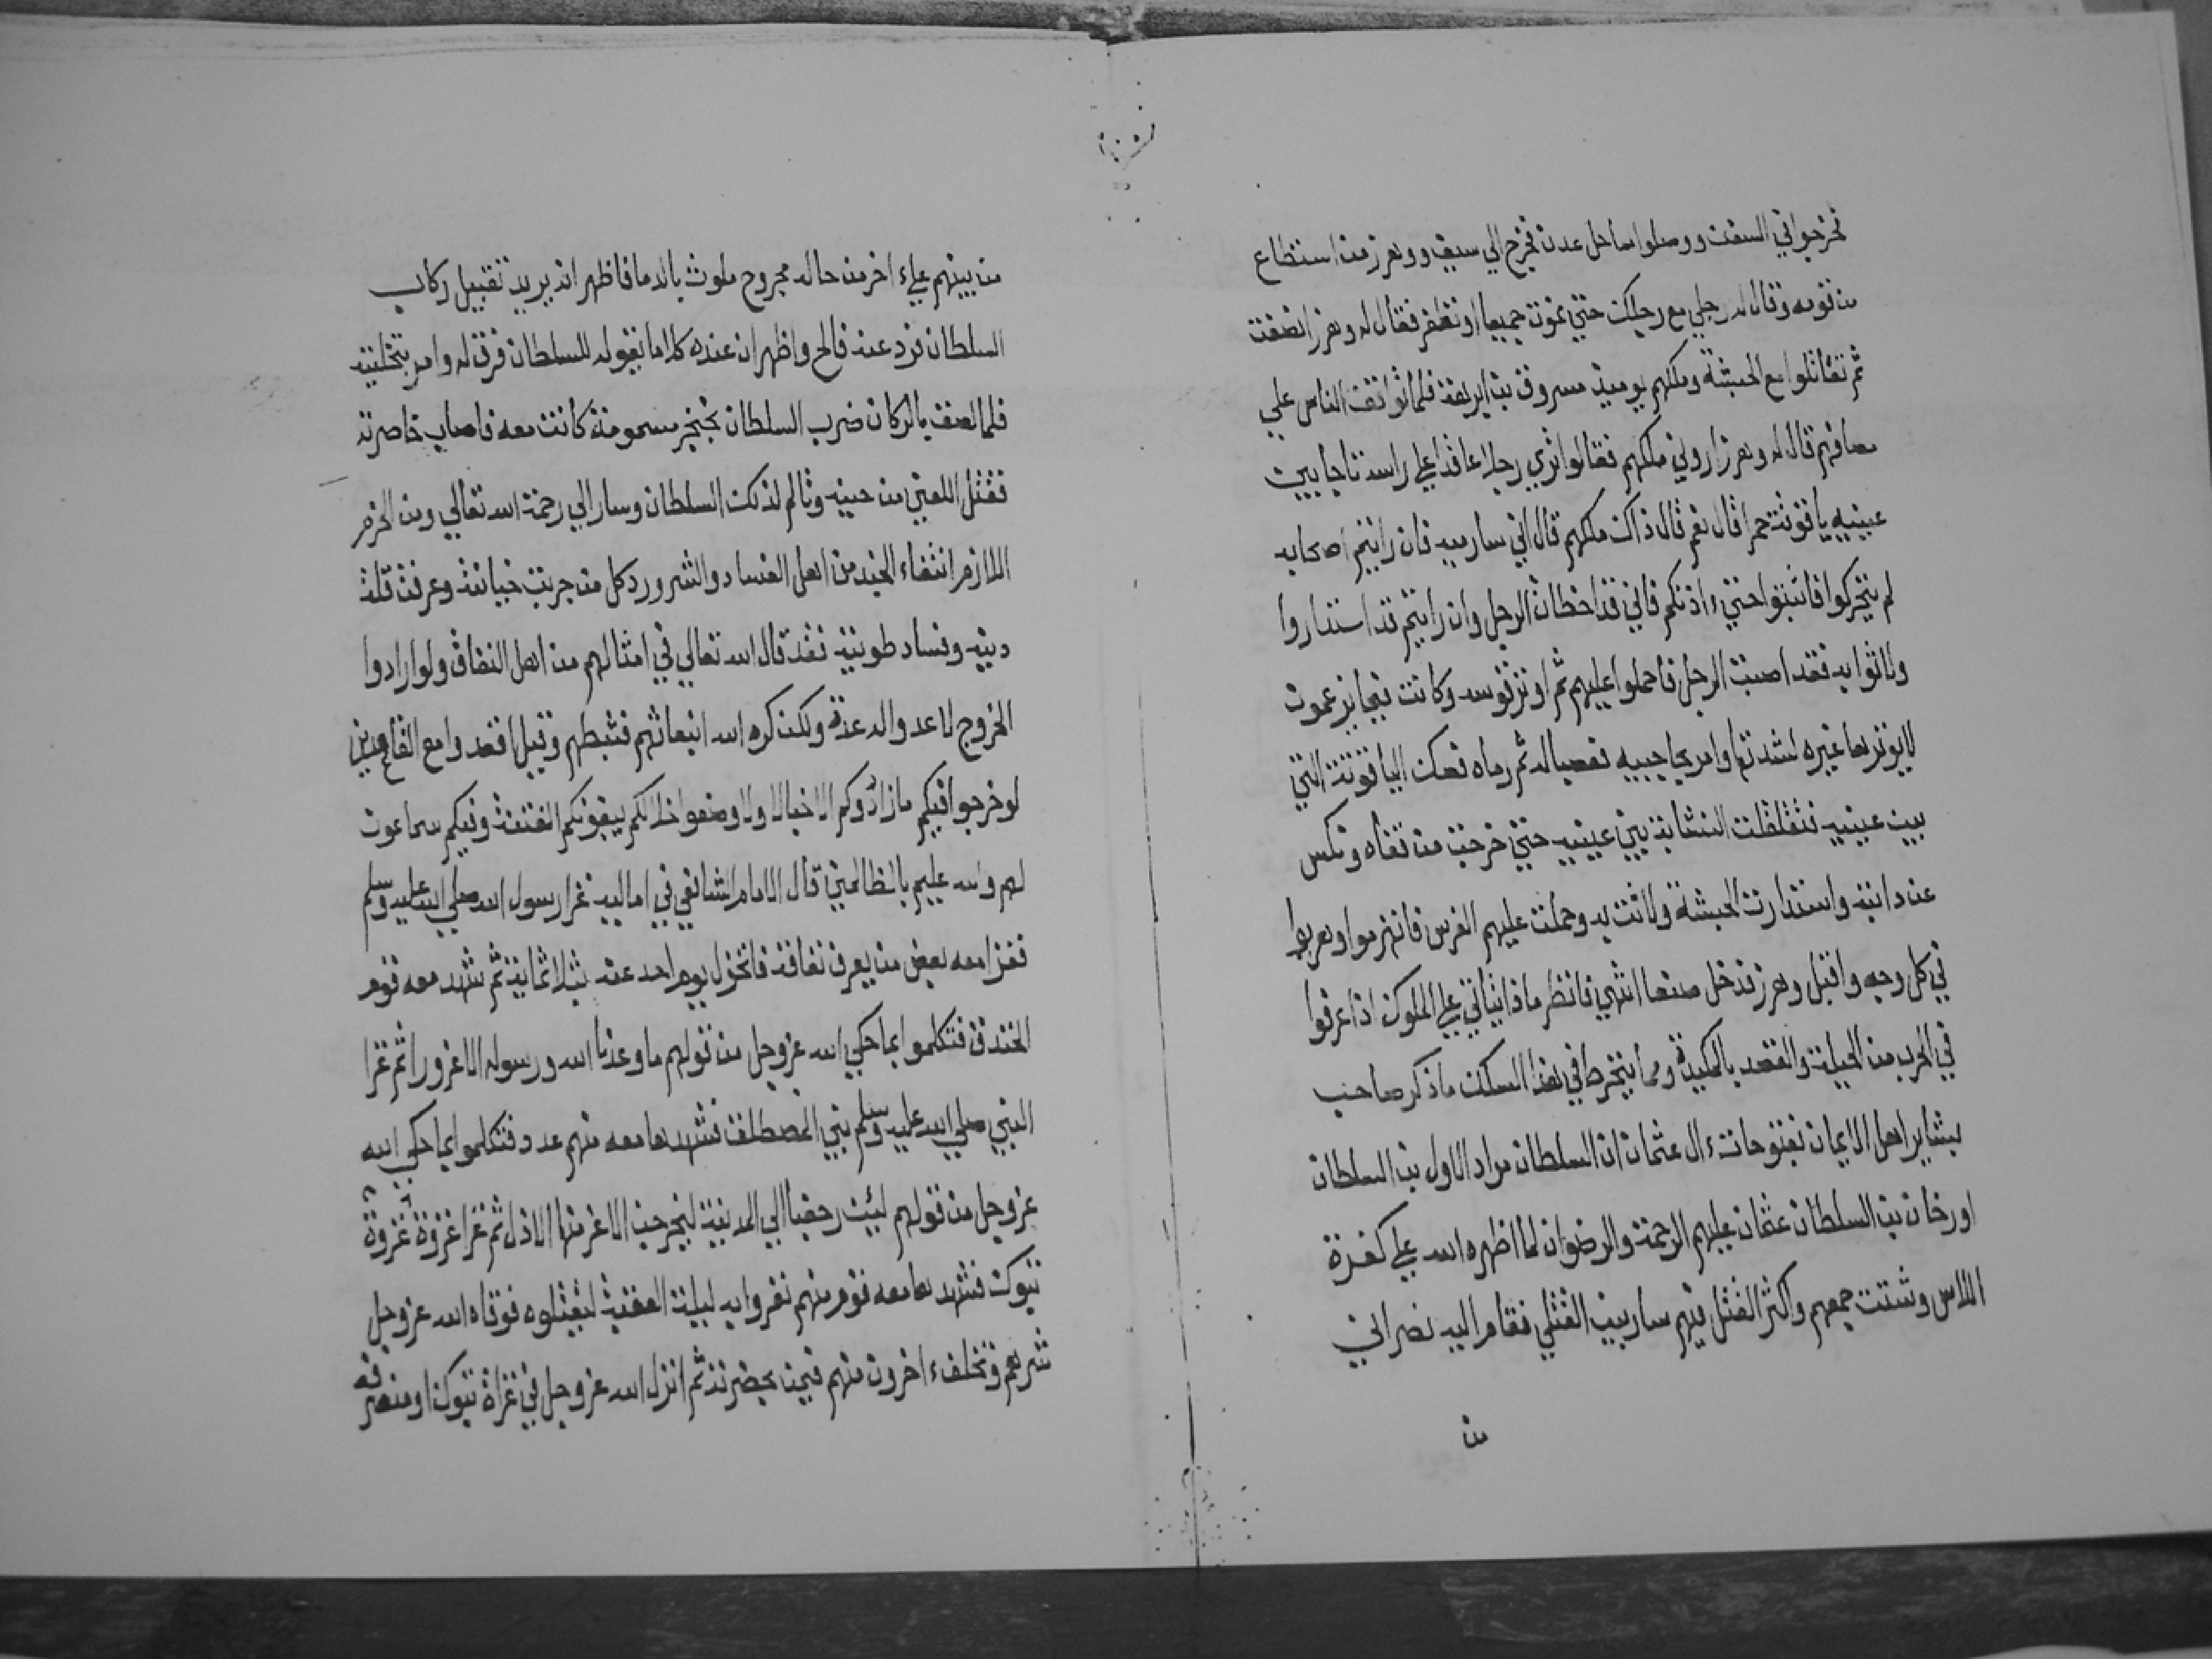 فخرجوا في السفن ووصلوا ساحل عدن فخرج الي سيف ووهرز من استطاع
من قومه وقال له رجلي مع رجلك حتي نموت جميعا او نظفر فقال له وهرز انصفت
ثم تقاتلوا مع الحبشة وملكهم يوميذ مسروق بن ابرهة فلما تواقف الناس علي
مصافهم قال له وهرز اروني ملكهم فقالوا تري رجلا عاقدا علي راسه تاجا بين
عينيه ياقوتة حمرا قال نعم قال ذاك ملكهم قال اني سارميه فان رايتم اصحابه
لم يتحركوا فاثبتوا حتيء اذنكم فاني قد اخطات الرجل وان رايتم قد استداروا
ولاثوا به فقد اصبت الرجل فاحملوا عليهم ثم اوتر قوسه وكانت فيما يزعمون
لا يوترها غيره لشدتها وامر بحاجبيه فعصبا له ثم رماه فصك الياقوتة التي
بين عينيه فتغلغلت النشابة بين عينيه حتي خرجت من قفاه ونكس
عن دابته واستدارت الحبشة ولاثت به وحملت عليهم الفرس فانهزموا وهربوا
في كل وجه واقبل وهرز فدخل صنعا انتهي فانظر ماذا يتاتي علي الملوك اذا عرفوا
في الحرب من الحيلة والقصد بالمكيدة ومما ينخرط في هذا السلك ما ذكر صاحب
بشاير اهل الايمان بفتوحاتء ال عثمان ان السلطان مراد الاول بن السلطان
اورخان بن السلطان عثمان عليهم الرحمة والرضوان لما اظهره الله علي كفرة
اللاس وشتت جمعهم واكثر القتل فيهم سار بين القتلي فقام اليه نصراني
من
من بينهم عليء اخر من حاله مجروح ملوث بالدما فاظهر انه يريد تقبيل ركاب
السلطان فرد عنه فالح واظهر ان عنده كلاما يقوله للسلطان فرق له وامر بتخليته
فلما لصق بالركاب ضرب السلطان بخنجر مسمومة كانت معه فاصاب خاصرته
فقتل اللعين من حينه وتالم لذلك السلطان وسار الي رحمة الله تعالي ومن الحزم
اللازم انتقاء الجند من اهل الفساد والشر ورد كل من جربت خيانته وعرفت قلة
دينه وفساد طويته فقد قال الله تعالي في امثالهم من اهل النفاق ولو ارادوا
الخروج لاعدوا له عدة ولكن كره الله انبعاثهم فثبطهم وقيل اقعدوا مع القاعدين
لو خرجوا فيكم ما زادوكم الا خبالا ولاوضعوا خلالكم يبغونكم الفتنة وفيكم سماعون
لهم والله عليم بالظالمين قال الامام الشافعي في اماليه غزا رسول الله صلي الله عليه وسلم
فغزا معه بعض من يعرف نفاقه فانخزل يوم احد عنه بثلاثماية ثم شهد معه قوم
الخندق فتكلموا بما حكي الله عز وجل من قولهم ما وعدنا الله ورسوله الا غرورا ثم غزا
النبي صلي الله عليه وسلم بني المصطلق فشهدها معه منهم عدد فتكلموا بما حكي الله
عز وجل من قولهم ليئن رجعنا الي المدينة ليخرجن الاعز منها الاذل ثم غزا غزوة غزوة
تبوك فشهدها معه قوم منهم نفروا به ليلة العقبة ليقتلوه فوقاه الله عز وجل
شرهم وتخلفء اخرون منهم فيمن بحضرته ثم انزل الله عز وجل في غزاة تبوك او منصرفه